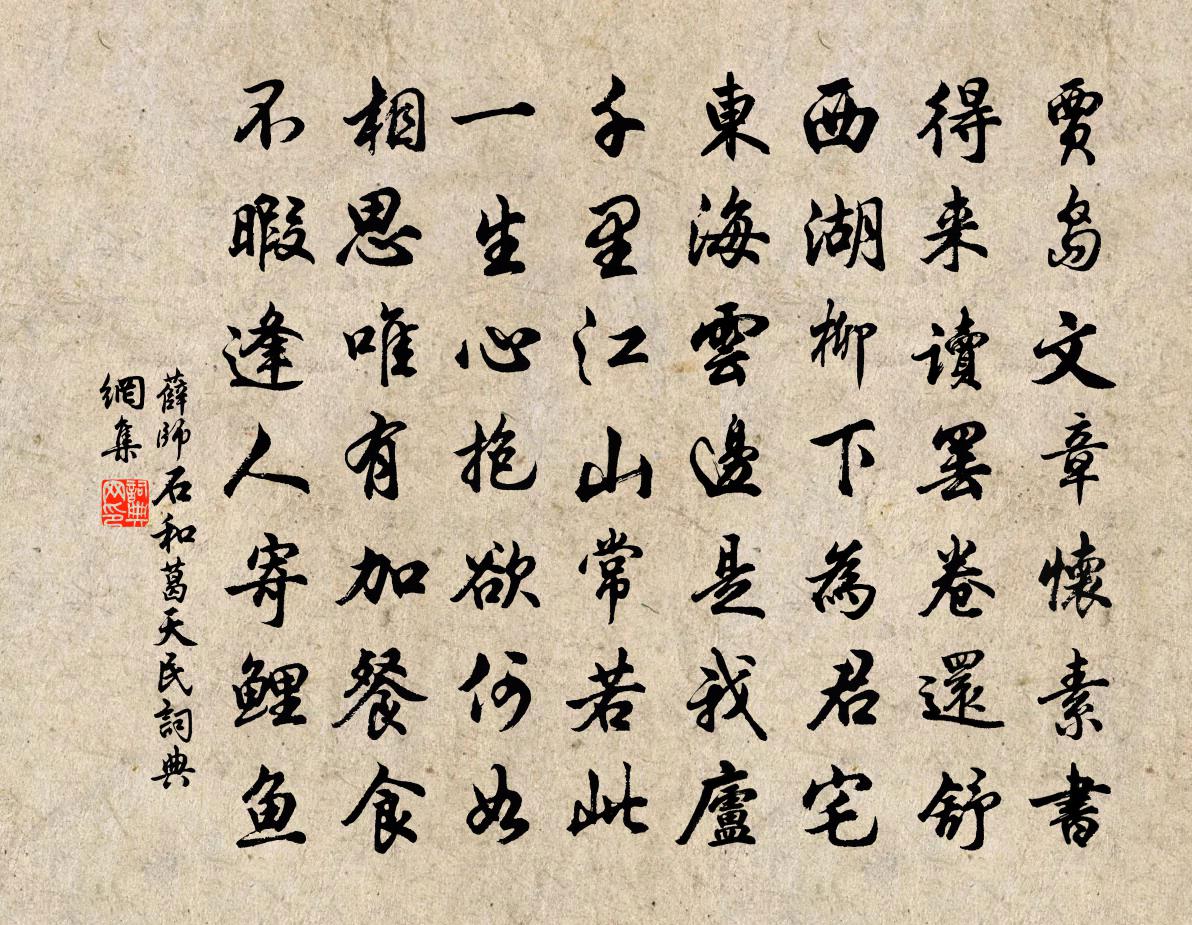 賈島文章懷素書
得来讀罢卷還舒
西湖柳下為君宅
東海雲邊是我廬
千里江山常若此
一生心抱欲何如
相思唯有加餐食
不暇逢人寄鲤鱼
薛師石和葛天民詞典
網集
詞典
网印